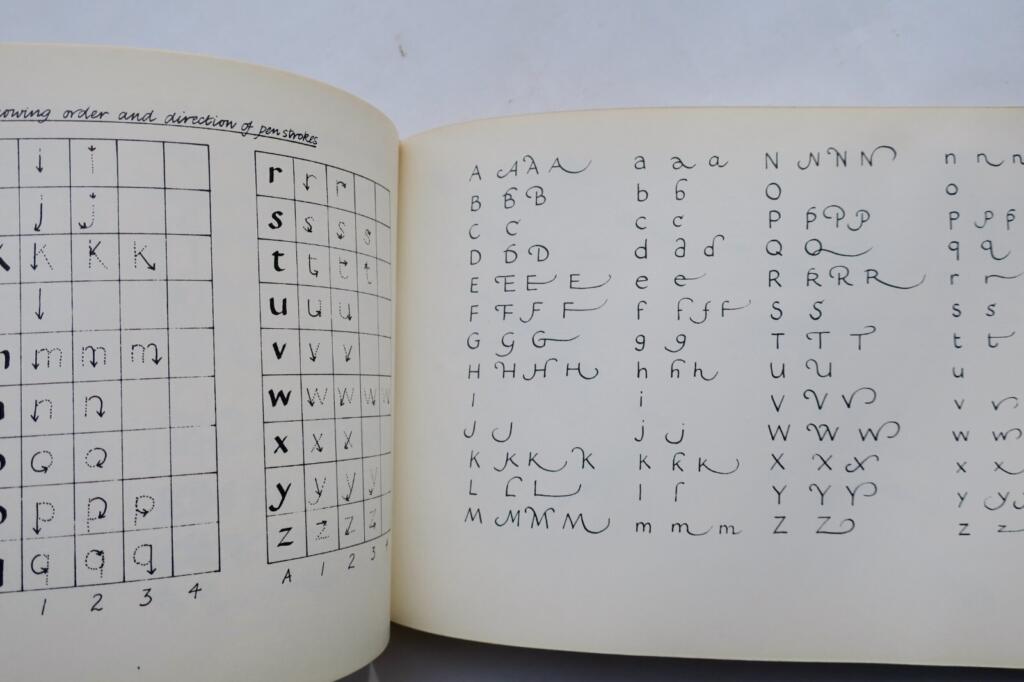 owing order and direction of pen strokes
j j
k k k k
m m m
n n
o o
p p p
q q q
1 2 3 4
r r r
s s s s
t t t t
u u u
v v v
w w w w w
x x x
y y y y
z z z z
A 1 2 3 4
A A A A a a a N N N N n n n
B B B b b O o
C C c c P P P P p p p
D D D d d d Q Q q q
E E E E e e R R R R r r
F F F F f f f f S S s s
G G G g g T T T t t
H H H H h h h U U u
I i V V V v v
J J j j W W W w w
K K K K k k k X X X x x
L L L l l Y Y Y y y
M M M M m m m Z Z z z